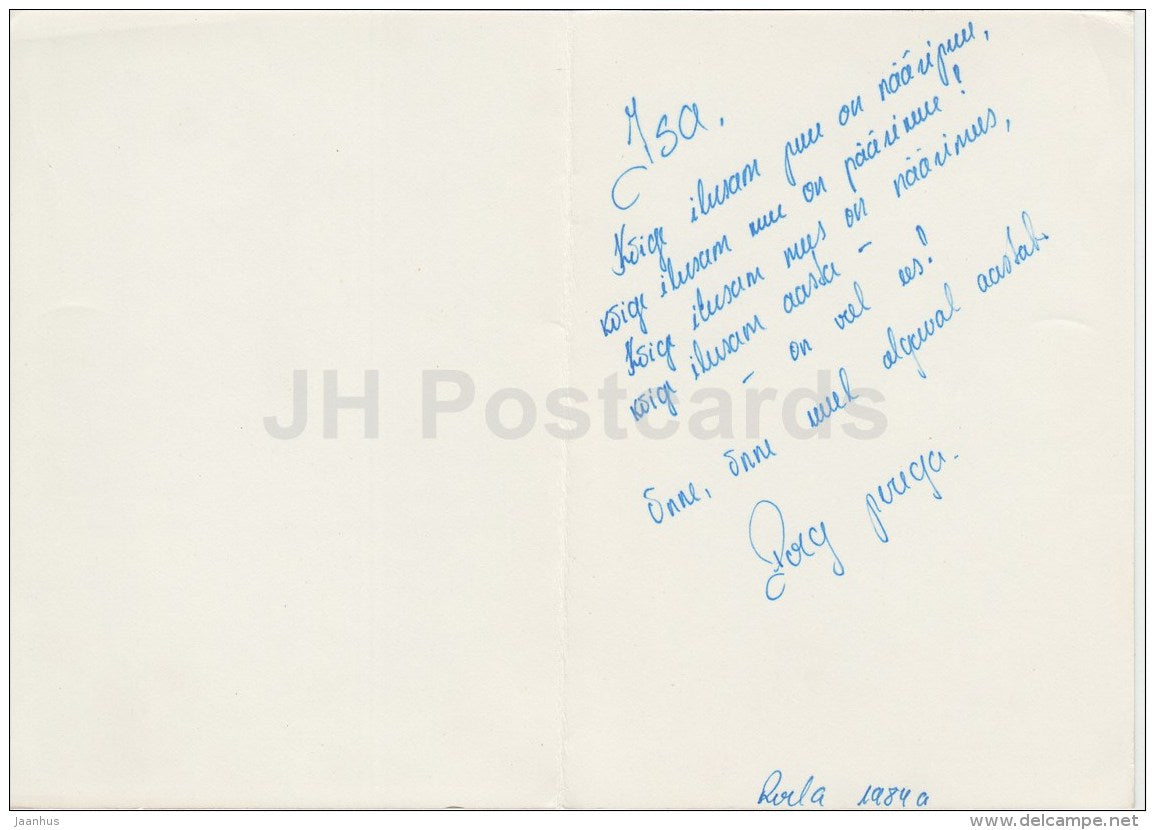 Isa,
Kõige ilusam puu on nääripuu,
kõige ilusam muu on päärimuu!
Kõige ilusam mees on näärimees,
kõige ilusam aasta –
– on veel ees!
Õnne, õnne uuel algaval aastal.
perega.
1984 a
JH Postcards
Jaanhus
www.delcampe.net